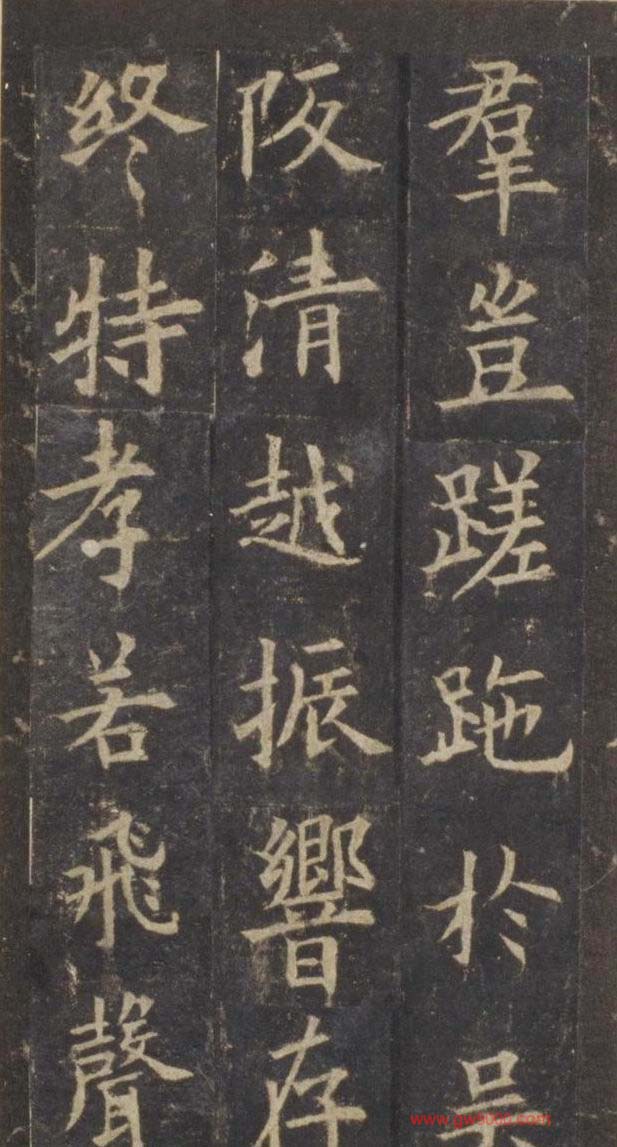 羣豈蹉跎於吳
阪清越振響存
終特孝若飛聲